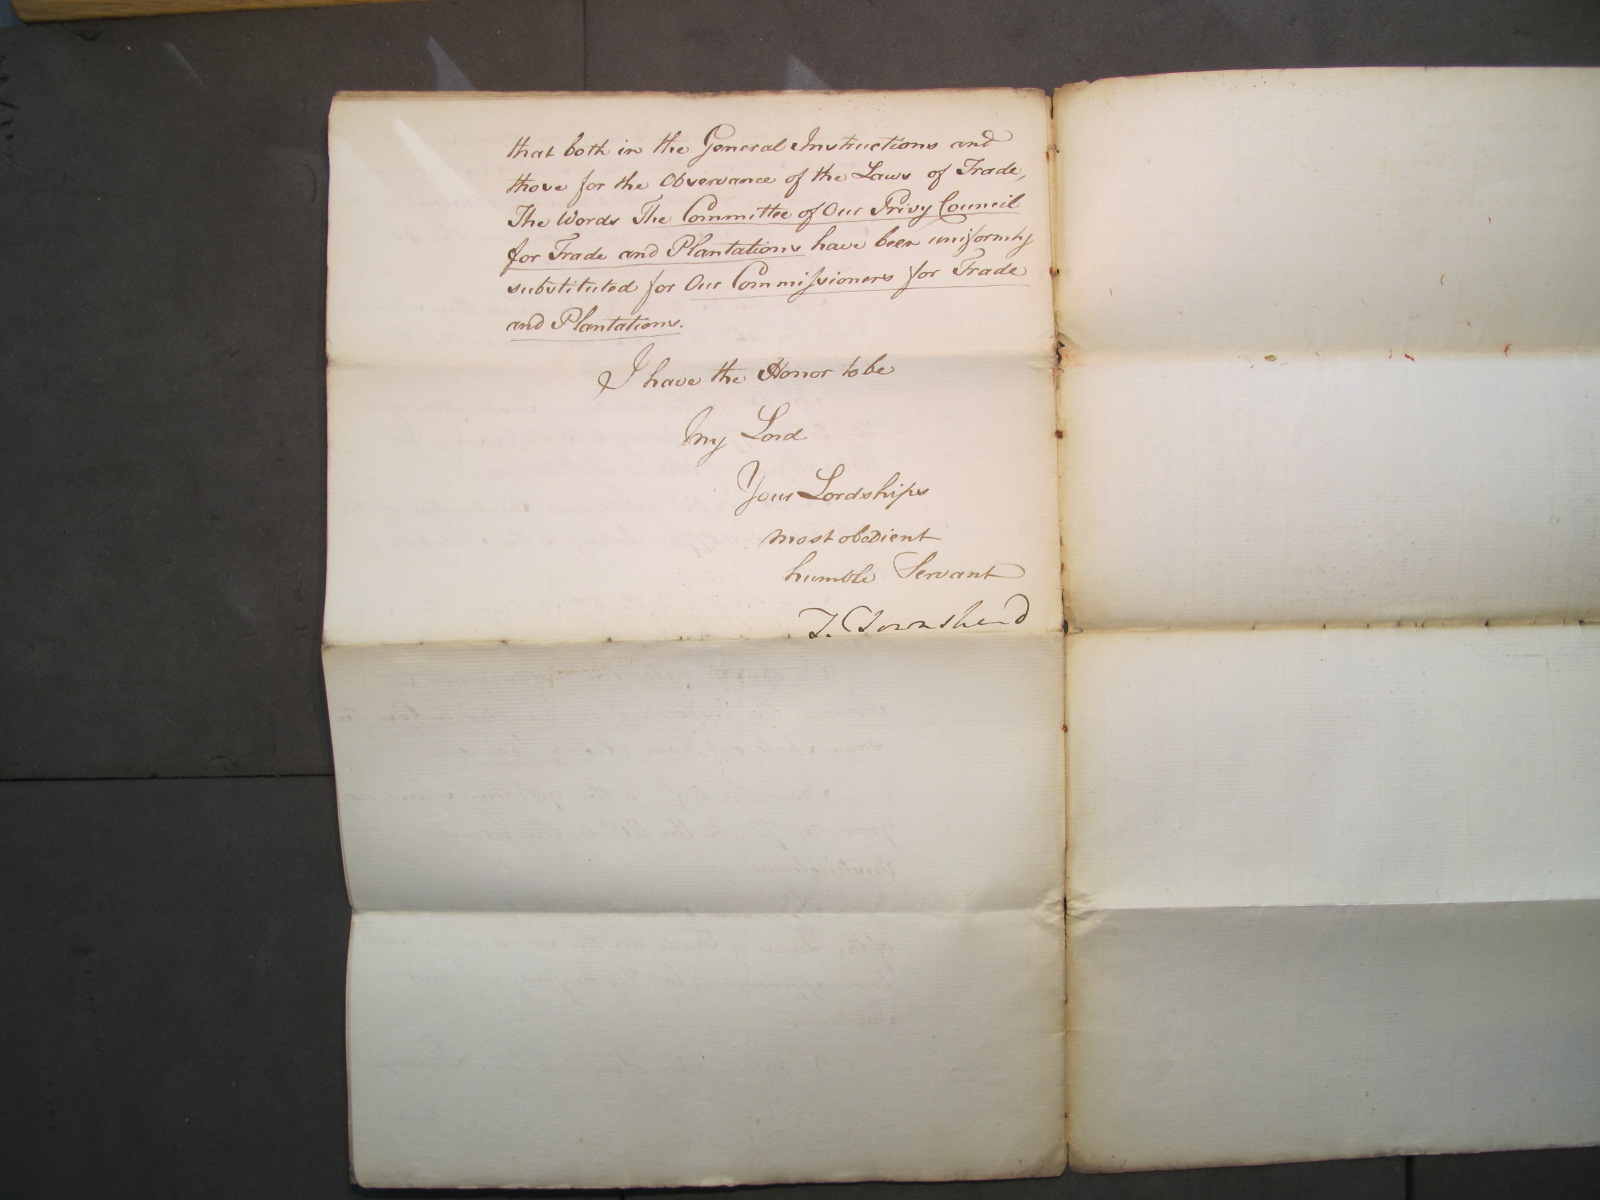 that both in the General Instructions and
those for the Observance of the Laws of Trade,
The Words The Committee of Our Privy Council
for Trade and Plantations have been uniformly
substituted for Our Commissioners for Trade
and Plantations.
I have the Honor to be
My Lord
Your Lordships
most obedient
humble Servant
T. Townshend